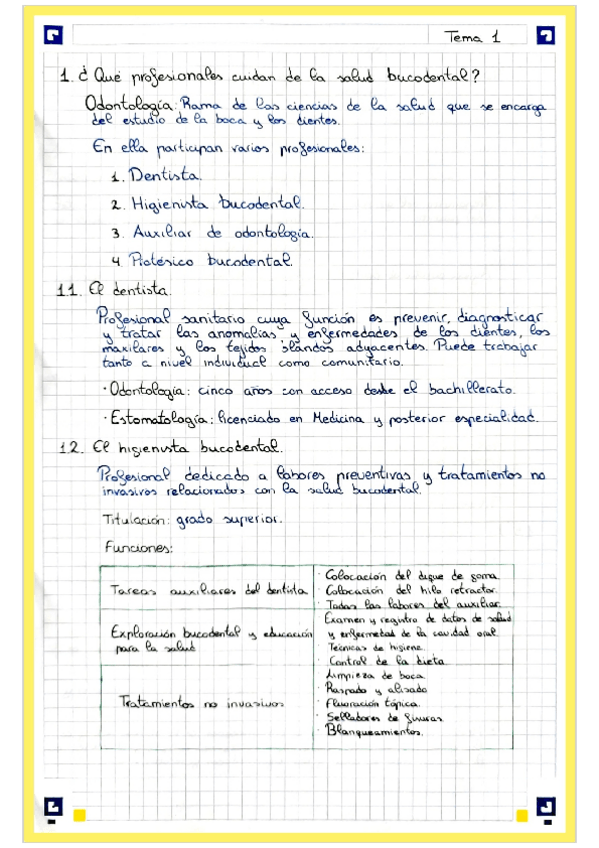 Tema 1
1. ¿Qué profesionales cuidan de la salud bucodental?
Odontología: Rama de las ciencias de la salud que se encarga
del estudio de la boca y los dientes.
En ella participan varios profesionales:
1. Dentista.
2. Higienista bucodental.
3. Auxiliar de odontología.
4. Protésico bucodental.
1.1. El dentista.
Profesional sanitario cuya función es prevenir, diagnosticar
y tratar las anomalías y enfermedades de los dientes, los
maxilares y los tejidos blandos adyacentes. Puede trabajar
tanto a nivel individual como comunitario.
· Odontología: cinco años con acceso desde el bachillerato.
· Estomatología: licenciado en Medicina y posterior especialidad.
1.2. El higienista bucodental.
Profesional dedicado a labores preventivas y tratamientos no
invasivos relacionados con la salud bucodental.
Titulación: grado superior.
Funciones:
Tareas auxiliares del dentista
· Colocación del dique de goma
· Colocación del hilo retractor.
· Todas las labores del auxiliar
Exploración bucodental y educación
para la salud
· Examen y registro de datos de salud
y enfermedad de la cavidad oral
· Técnicas de higiene.
· Control de la dieta.
Tratamientos no invasivos
· Limpieza de boca.
· Raspado y alisado
· Fluoración tópica.
· Selladores de fisuras.
· Blanqueamientos.